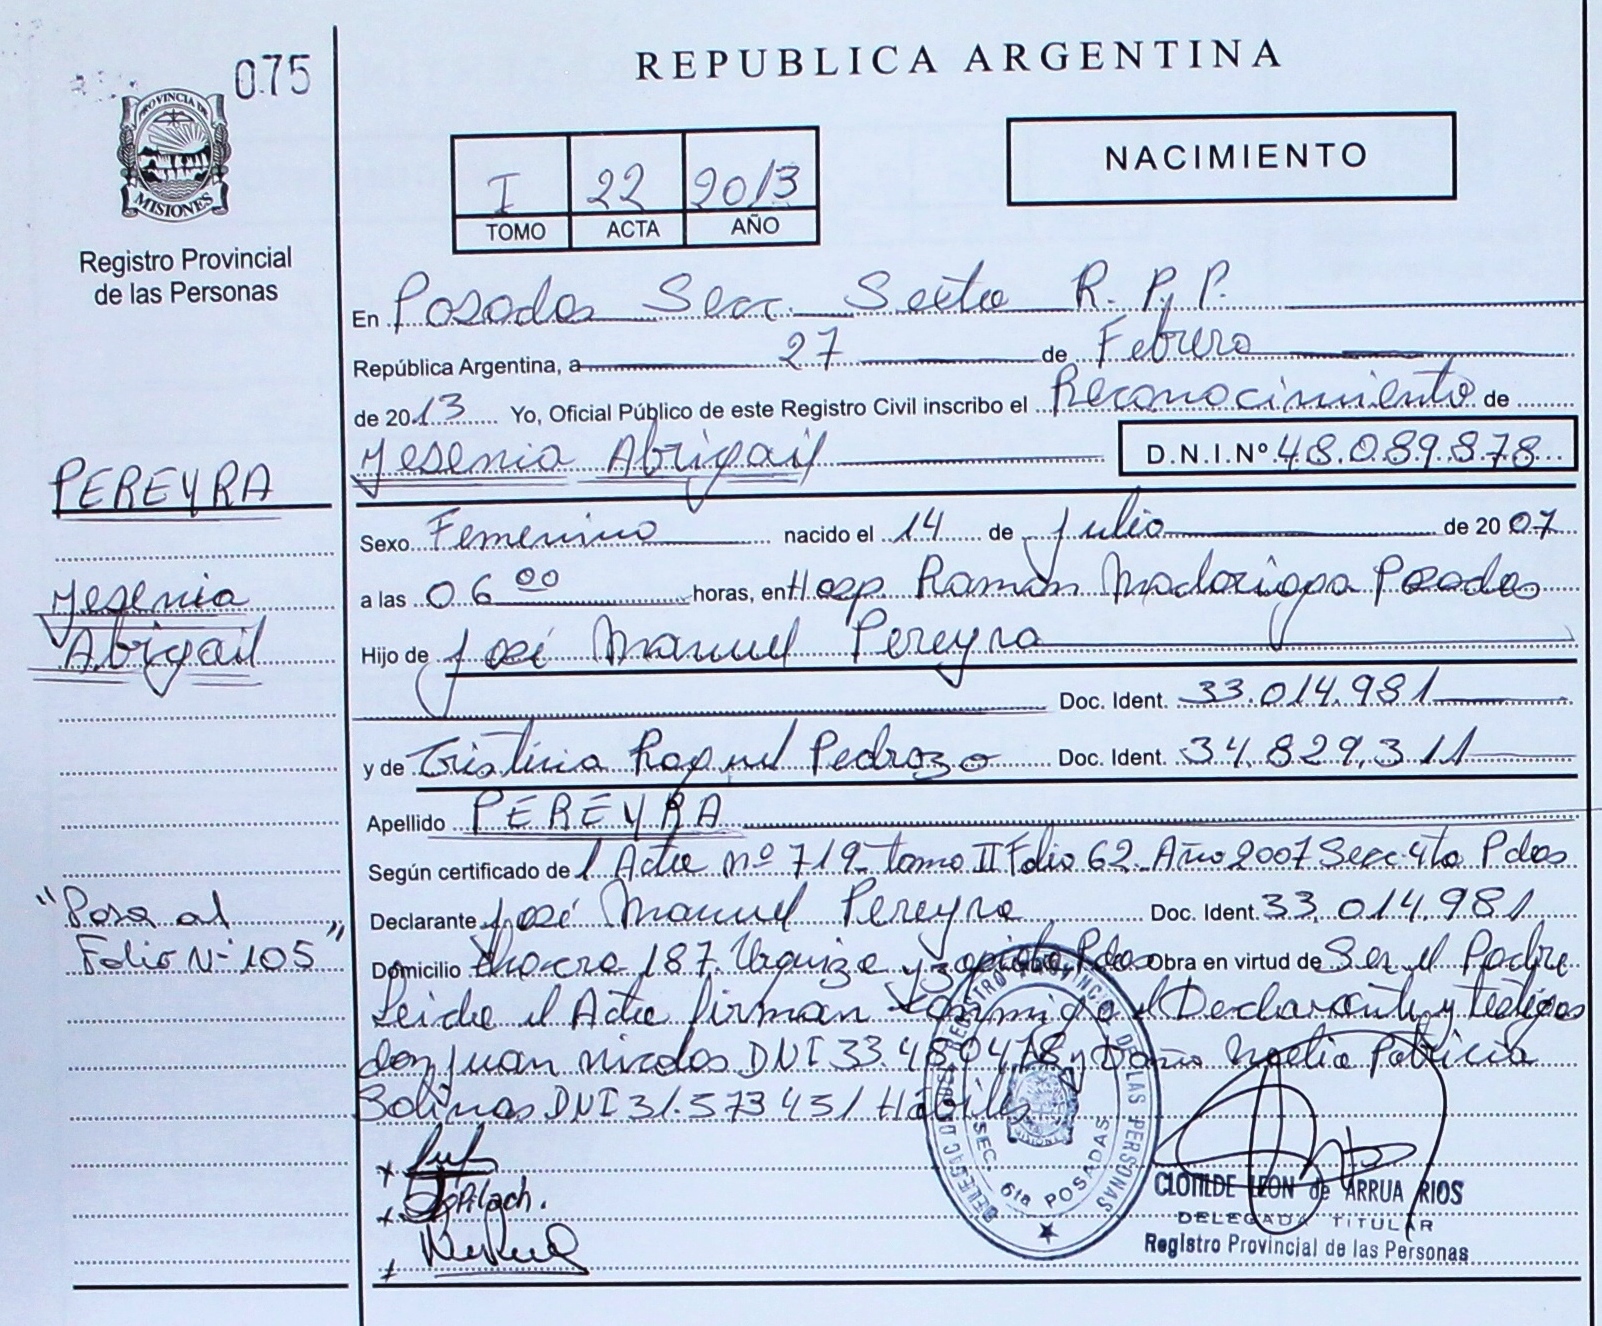 075
PROVINCIA DE
MISIONES
Registro Provincial
de las Personas
REPUBLICA ARGENTINA
NACIMIENTO
I 22 2013
TOMO ACTA AÑO
En Posadas Secc. Sexta R. P. P.
República Argentina, a 27 de Febrero
de 2013 Yo, Oficial Público de este Registro Civil inscribo el Reconocimiento de
Yesenia Abrigail D.N.I.Nº 48.089.878
PEREYRA
Yesenia
Abigail
Sexo Femenino nacido el 14 de Julio de 2007
a las 06 00 horas, en Hosp. Ramón Madariaga Posadas
Hijo de José Manuel Pereyra
Doc. Ident. 33.014.981
y de Cristina Raquel Pedrozo Doc. Ident. 34.829.311
Apellido PEREYRA
Según certificado de Acta nº 719 tomo II Folio 62 Año 2007 Secc 4ta Pdas
Declarante José Manuel Pereyra Doc. Ident. 33.014.981
Domicilio Chacra 187. Urquiza y Pdas Obra en virtud de Ser el Padre
Leida el Acta firman conmigo el Declarante y testigos
don Juan nicolas DNI 33.480478 y Doña Noelia Patricia
Bolinas DNI 31.573451 Hábiles
"Pasa al
Folio Nº 105"
DELEGACION REGISTRO PROVINCIAL DE LAS PERSONAS
SEC. 6ta POSADAS
CLOTILDE LEON de ARRUA RIOS
DELEGADA TITULAR
Registro Provincial de las Personas